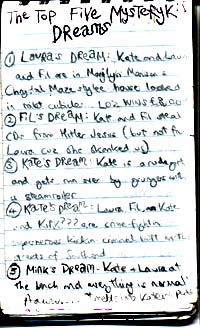 The Top Five Mystery
Dreams
① LAURA'S DREAM: Kate and Laura
and Fil are in Marilyn Manson's
Crystal Maze style house locked
in toilet cubicles... Loz WINS £8,000
② FIL'S DREAM: Kate and Fil steal
CDs from Hitler Jesus (but not for
Laura cus she skanked us)
③ KATE'S DREAM: Kate is a
and gets run over by grungers with
a steamroller
④ KATE'S DREAM: Laura, Fil, Kate
and Kirk??? are crime-fightin
superheroes kickin criminal butt in the
streets of Southend
⑤ MINK'S DREAM: Kate + Laura at
the and everything is normal
Kate's